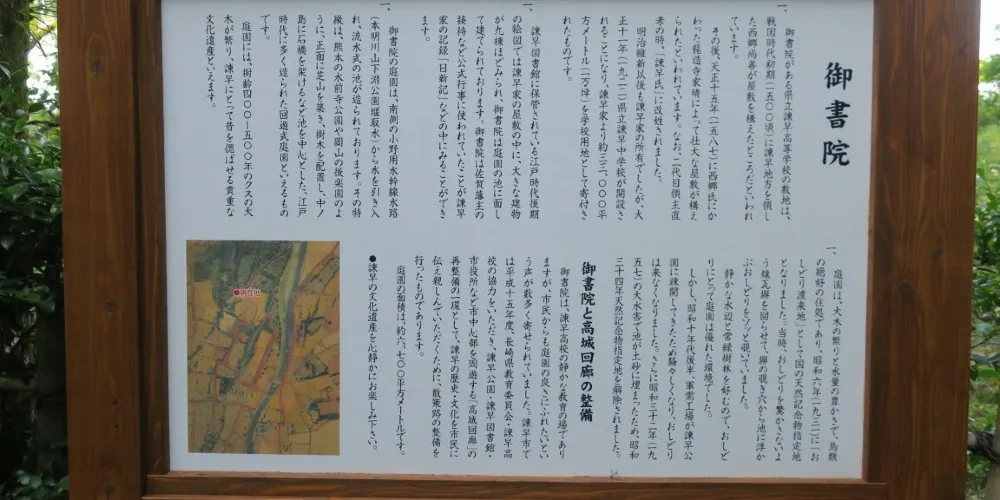 御書院
一、御書院がある県立諫早高等学校の敷地は、
戦国時代初期(一五〇〇頃)に諫早地方を領し
た西郷尚善が屋敷を構えたところだといわれ
ています。
その後、天正十五年(一五八七)に西郷氏にか
わった龍造寺家晴によって壮大な屋敷が構え
られたといわれています。なお、二代目領主直
孝の時、「諫早氏」に改姓されました。
明治維新以後も諫早家の所有でしたが、大
正十一年(一九二二)県立諫早中学校が開設さ
れることになり、諫早家より約三三、〇〇〇平
方メートル(一万坪)を学校用地として寄付さ
れたものです。
一、諫早図書館に保管されている江戸時代後期
の絵図では諫早家の屋敷の中に、大きな建物
が九棟ほどみられ、御書院は庭園の池に面し
て建てられております。御書院は佐賀藩主の
接待など公式行事に使われていたことが諫早
家の記録「日新記」などの中にみることができ
ます。
一、御書院の庭園は、南側の小野用水幹線水路
(本明川山下淵公園堰取水)から水を引き入
れ、流水式の池が造られております。その特
徴は、熊本の水前寺公園や岡山の後楽園のよ
うに、正面に芝山を築き、樹木を配置し、中ノ
島に石橋を架けるなど池を中心とした、江戸
時代に多く造られた回遊式庭園といえるもの
です。
庭園には、樹齢四〇〇〜五〇〇年のクスの大
木が繁り、諫早にとって昔を偲ばせる貴重な
文化遺産といえます。
一、庭園は、大木の繁りと水量の豊かさで、鳥類
の絶好の住処であり、昭和六年(一九三一)「お
しどり渡来地」として国の天然記念物指定地
となりました。当時、おしどりを驚かさないよ
う煉瓦塀を回らせて、塀の覗き穴から池に浮か
ぶおしどりをソッと覗いていました。
静かな水辺と常緑樹林を好むので、おしど
りにとって庭園は優れた環境でした。
しかし、昭和十年代後半、軍需工場が諫早公
園に疎開してきたため騒々しくなり、おしどり
は来なくなりました。さらに昭和三十二年(一九
五七)の大水害で池が土砂に埋まったため、昭和
三十四年天然記念物指定地を解除されました。
御書院と高城回廊の整備
御書院は、諫早高校の静かな教育の場であり
ますが、市民からも庭園の良さにふれたいとい
う声が数多く寄せられていました。諫早市で
は平成十五年度、長崎県教育委員会・諫早高
校の協力をいただき、諫早公園・諫早図書館・
市役所など市中心部を周遊する「高城回廊」の
再整備の一環として、諫早の歴史・文化を市民に
伝え親しんでいただくために、散策路の整備を
行ったものであります。
庭園の面積は、約六、七〇〇平方メートルです。
●諫早の文化遺産を心静かにお楽しみ下さい。
●現在地